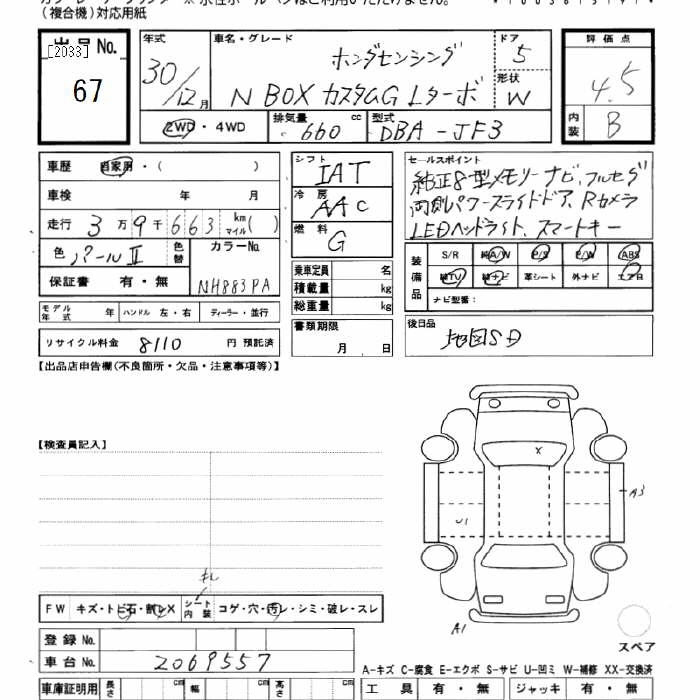 (複合機)対応用紙
出品No.
[2033]
67
年式
30/12月
車名・グレード
ホンダセンシング
N BOX カスタムG Lターボ
ドア
5
形状
W
評価点
4.5
内装
B
2WD・4WD
排気量
660 cc
型式
DBA-JF3
車歴 自家用・( )
車検 年 月
走行 3万9千663 km マイル( )
色 パールII
色替
カラーNo.
NH883PA
保証書 有・無
モデル年式 年 ハンドル 左・右 ディーラー・並行
リサイクル料金 8110 円 預託済
シフト
IAT
冷房
AAC
燃料
G
乗車定員 名
積載量 kg
総重量 kg
書類期限
月 日
セールスポイント
純正8型メモリーナビ、フルセグ
両側パワースライドドア、Rカメラ
LEDヘッドライト、スマートキー
装備品
S/R 純A/W P/S P/W ABS
純TV 純ナビ 革シート 外ナビ エアB
ナビ型番:
後日品
地図SD
【出品店申告欄(不良箇所・欠品・注意事項等)】
【検査員記入】
X
A3
U1
A1
キレ
FW キズ・トビ石・割レX シート内装 コゲ・穴・汚レ・シミ・破レ・スレ
スペア
登録No.
車台No. 2069557
A-キズ C-腐食 E-エクボ S-サビ U-凹ミ W-補修 XX-交換済
車庫証明用 長さ cm 幅 cm 高さ cm
工具 有・無 ジャッキ 有・無